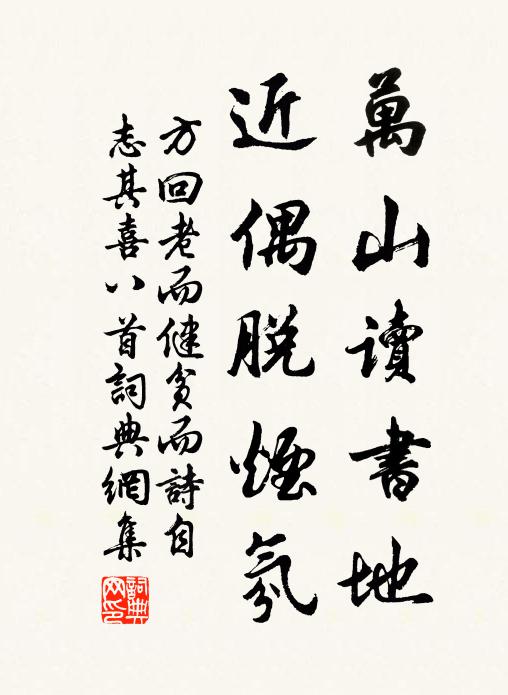 萬山讀書地
近偶脫煙氛
方回老而健貧而詩自
志其喜八首詞典網集
詞典網印